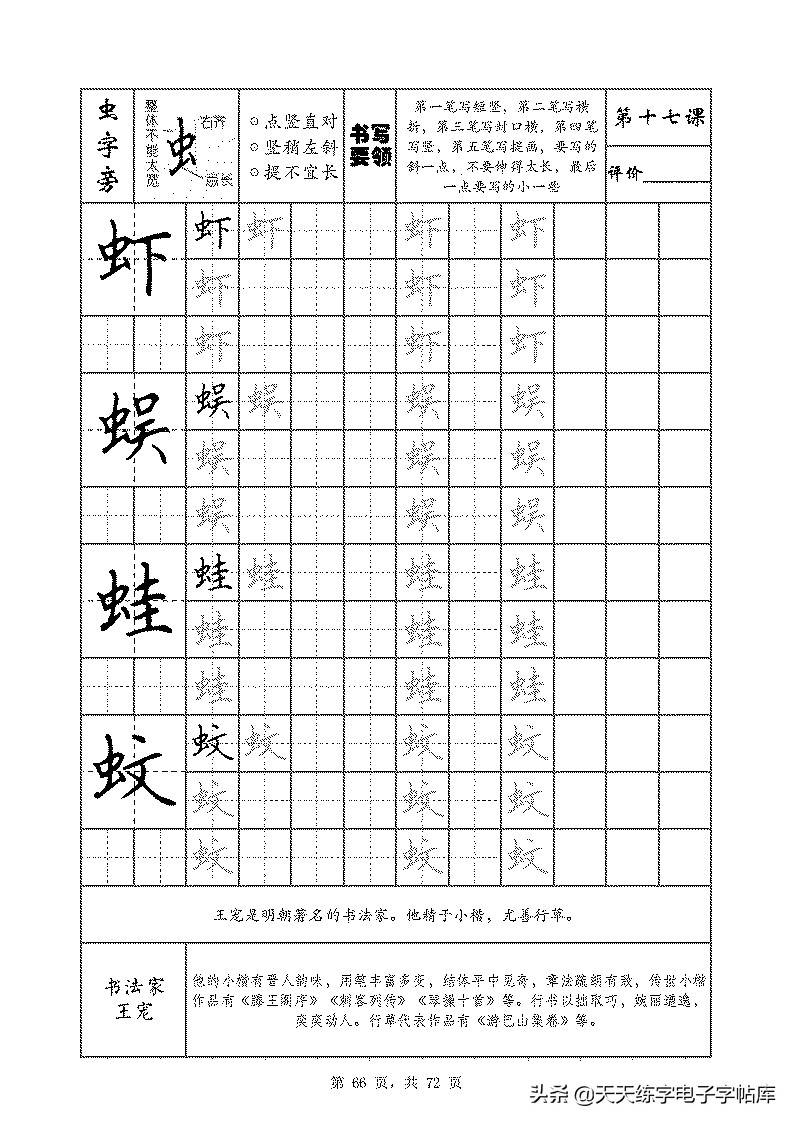 虫字旁
整体不能太宽
右齐
点竖直对
竖稍左斜
提不宜长
书写
要领
第一笔写短竖，第二笔写横
折，第三笔写封口横，第四笔
写竖，第五笔写提画，要写的
斜一点，不要伸得太长，最后
一点要写的小一些
第十七课
评价
虾 虾 虾 虾 虾
虾 虾 虾
虾 虾 虾
蜈 蜈 蜈 蜈 蜈
蜈 蜈 蜈
蜈 蜈 蜈
蛙 蛙 蛙 蛙 蛙
蛙 蛙 蛙
蛙 蛙 蛙
蚊 蚊 蚊 蚊 蚊
蚊 蚊 蚊
蚊 蚊 蚊
王宠是明朝著名的书法家。他精于小楷，尤善行草。
书法家
王宠
他的小楷有晋人韵味，用笔丰富多变，结体平中见奇，章法疏朗有致，传世小楷
作品有《滕王阁序》《刺客列传》《琴操十首》等。行书以拙取巧，婉丽遒逸，
奕奕动人。行草代表作品有《游包山集卷》等。
第 66 页，共 72 页
头条 @天天练字电子字帖库